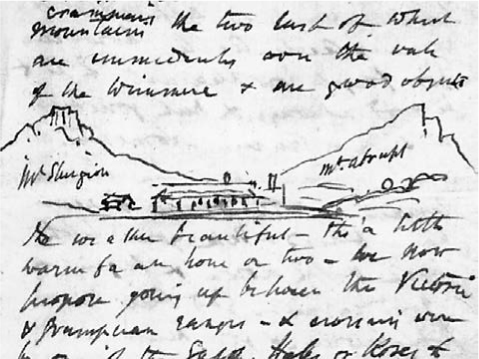 mountains the two last of which
are immediately over the vale
of the Wimmera & are good objects
Mt Sturgeon
Mt Abrupt
beautiful - tho' a little
warm for an hour or two - We now
propose going up between the Victoria
& Grampian ranges - & crossing over